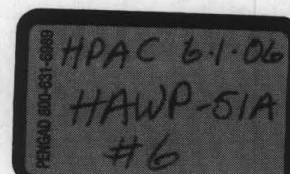 PENGAD 800-631-6989
HPAC 6.1.06
HAWP-51A
#6